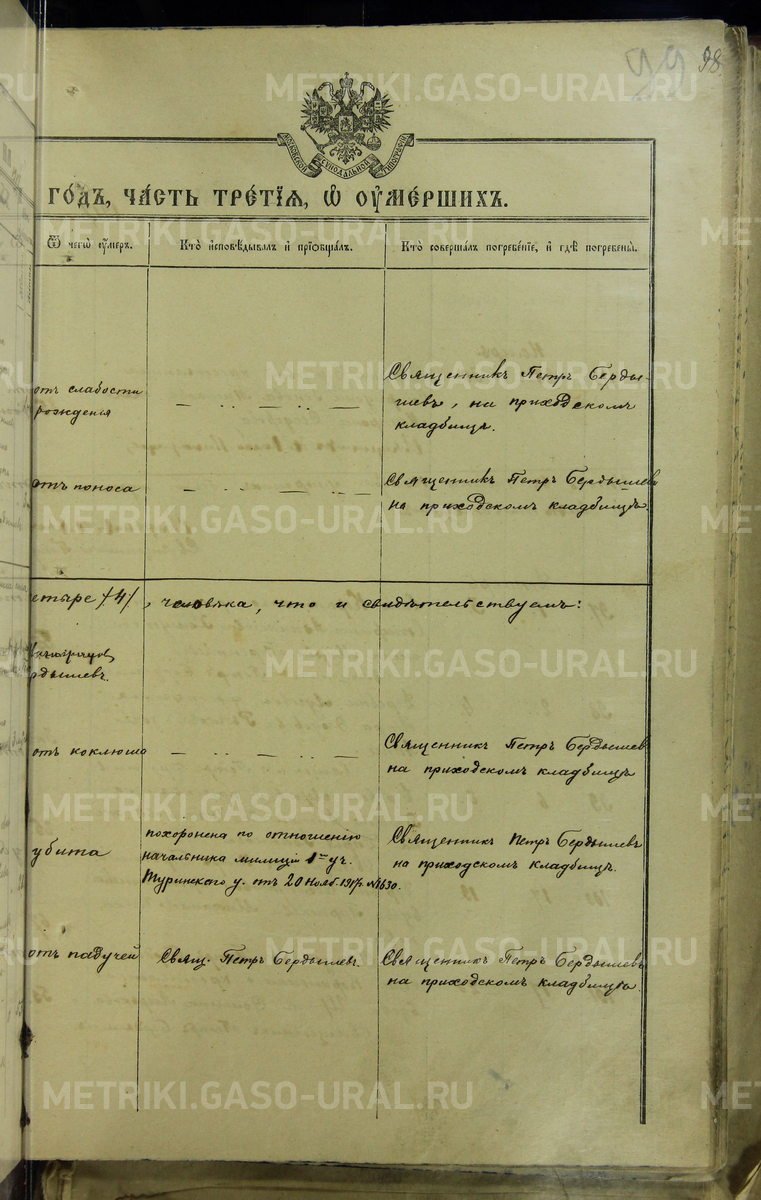 98
99
МОСКОВСКОЙ СѴНОДАЛЬНОЙ ТИПОГРАФІИ
ГОДЪ, ЧАСТЬ ТРЕТІЯ, Ѡ ОУМЕРШИХЪ.
Ѿ чегѡ оумеръ.
Кто исповѣдывалъ и пріобщалъ.
Кто совершалъ погребеніе, и гдѣ погребены.
отъ слабости
рожденья
— .. — .. — —
Священникъ Петръ Берды-
шевъ, на приходскомъ
кладбищѣ.
отъ поноса
— .. — .. —
Священникъ Петръ Бердышевъ
на приходскомъ кладбищѣ.
етыре /4/, человѣка, что и свидѣтельствуемъ:
рдышевъ.
отъ коклюша
— .. — .. —
Священникъ Петръ Бердышев
на приходскомъ кладбищѣ
убита
похоронена по отношенію
начальника милиціи 1го уч.
Туринскаго у. отъ 20 Нояб. 1917г. №1630.
Священникъ Петръ Бердышевъ
на приходскомъ кладбищѣ.
отъ падучей
Свящ. Петръ Бердышевъ.
Священникъ Петръ Бердышевъ
на приходскомъ кладбищѣ.
METRIKI.GASO-URAL.RU